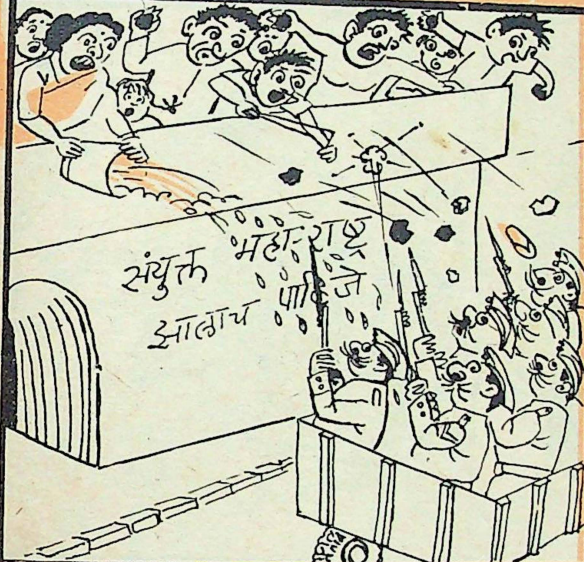 संयुक्त महाराष्ट्र
झालाच पाहिजे